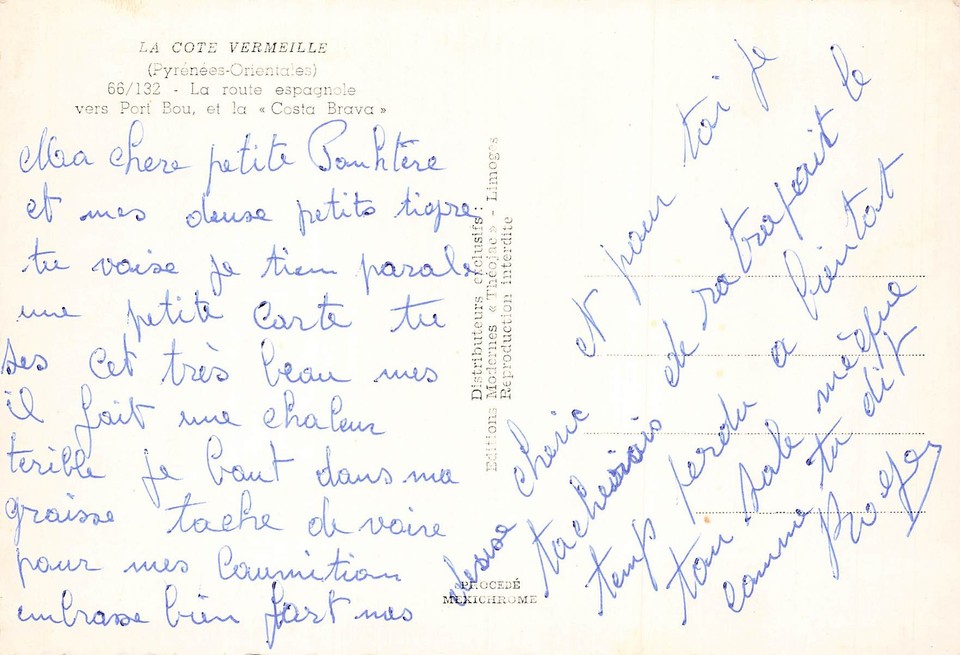 LA COTE VERMEILLE
(Pyrénées-Orientales)
66/132 - La route espagnole
vers Port Bou, et la « Costa Brava »
Ma chere petite Panhtère
et mes deuse petits tigre
tu voise je tien parale
une petite carte tu
ses cet très beau mes
il fait une chaleur
terible je baut dans ma
graisse tache de voire
pour mes
embrasse bien fort mes
Distributeurs exclusifs :
Editions Modernes « Théojac » - Limoges
Reproduction interdite
PROCEDÉ
MEXICHROME
deuse cheric et pour toi je
tacherais de ratrapait le
temp perdu a bientot
ton sale mèque
comme tu dit
Roger